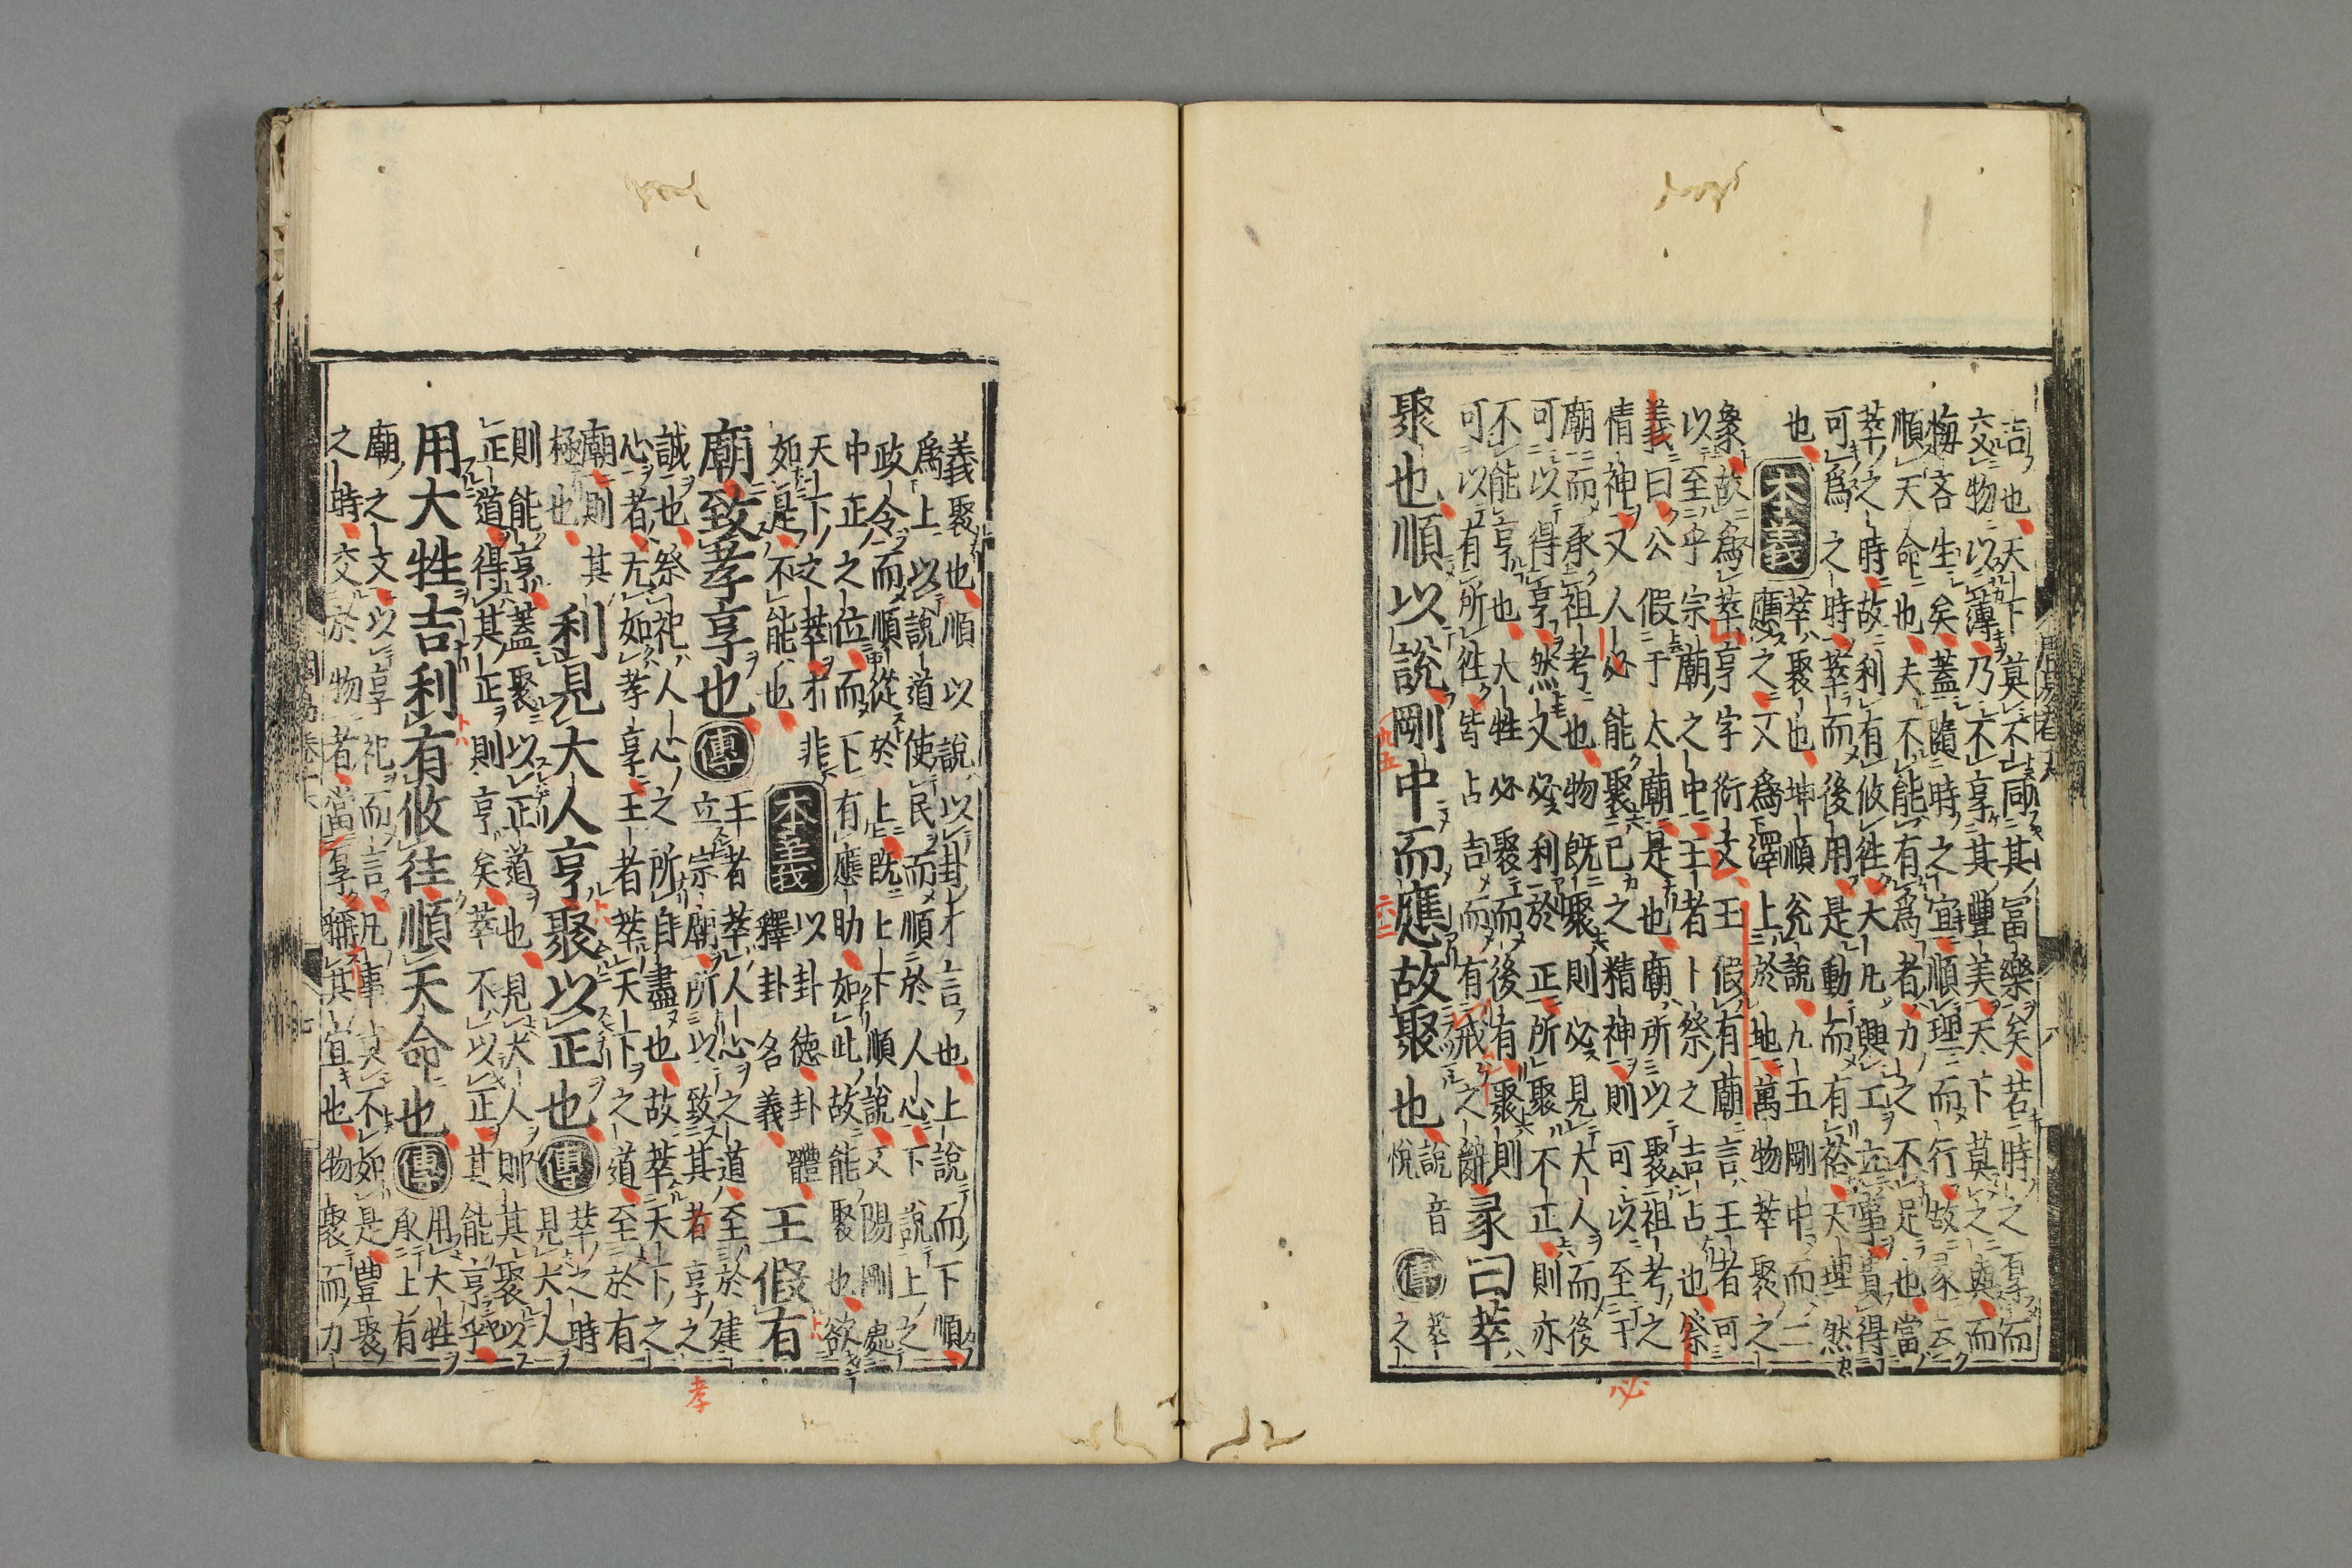 吉也天下莫不同其富樂矣若時之厚而
交物以薄乃不享其豐美天下莫之與而
悔吝生矣蓋隨時之宜順理而行故彖云
順天命也夫不能有爲者力之不足也當
萃之時故利有攸往大凡興工立事貴得
可爲之時萃而後用是動而有裕天理然
也
本義 萃聚也坤順兌說九五剛中而二
應之又爲澤上於地萬物萃聚之
象故爲萃亨字衍文王假有廟言王者可
以至乎宗廟之中王者卜祭之吉占也祭
義曰公假于太廟是也廟所以聚祖考之
情神又人必能聚己之精神則可以至于
廟而承祖考也物既聚則必見大人而後
可以得亨然又必利於正所聚不正則亦
不能亨也大牲必聚而後有聚則
可以有所往皆占吉而有戒之辭
彖曰萃
聚也順以說剛中而應故聚也 說音悅 傳 萃之
九五
六二
必
義聚也順以說以卦才言也上說而下順
爲上以說道使民而順於人心下說上之
政令而順從於上既上下順說又陽剛處
中正之位而下有應助如此故能聚也欲
天下之萃才非
如是不能也
本義 以卦德卦體
釋卦名義
王假有
廟致孝享也 傳 王者萃人心之道至於建
立宗廟所以致其者享之
誠也祭祀人心之所自盡也故萃天下之
心者无如孝享王者萃天下之道至於有
廟則其
極也
利見大人亨聚以正也 傳 萃之時
見大人
則能亨蓋聚以正道也見大人則其聚以
正道得其正則亨矣萃不以正其能亨乎
用大牲吉利有攸往順天命也 傳 用大牲
承上有
廟之文以享祀而言凡事莫不如是豐聚
之時交於物者當厚稱其宜也物聚而力
孝